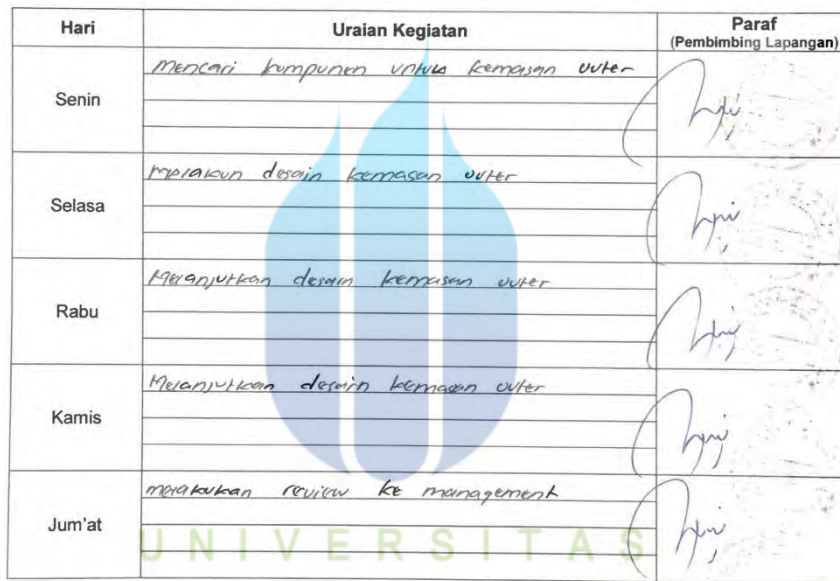 Hari Uraian Kegiatan Paraf
(Pembimbing Lapangan)
Senin
Mencari komponen untuk kemasan outer
Selasa
desain kemasan outer
Rabu
Melanjutkan desain kemasan outer
Kamis
Melanjutkan desain kemasan outer
Jum'at
melakukan review ke management
UNIVERSITAS